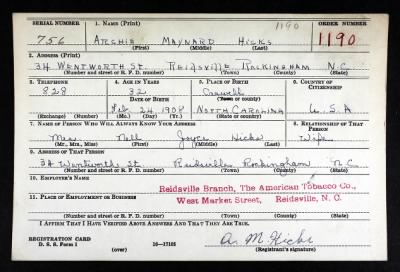 SERIAL NUMBER 1. NAME (Print) 1190 ORDER NUMBER
756 ARCHIE MAYNARD HICKS 1190
(First) (Middle) (Last)
2. ADDRESS (Print)
34 WENTWORTH ST. REIDSVILLE ROCKINGHAM N.C.
(Number and street or R. F. D. number) (Town) (County) (State)
3. TELEPHONE 4. AGE IN YEARS 5. PLACE OF BIRTH 6. COUNTRY OF CITIZENSHIP
828 32 Caswell
DATE OF BIRTH (Town or county)
Feb 24 1908 NORTH CAROLINA U.S.A
(Exchange) (Number) (Mo.) (Day) (Yr.) (State or country)
7. NAME OF PERSON WHO WILL ALWAYS KNOW YOUR ADDRESS 8. RELATIONSHIP OF THAT PERSON
Mrs. Nell Joyce Hicks Wife
(Mr., Mrs., Miss) (First) (Middle) (Last)
9. ADDRESS OF THAT PERSON
34 Wentworth St Reidsville Rockingham N.C.
(Number and street or R. F. D. number) (Town) (County) (State)
10. EMPLOYER'S NAME
Reidsville Branch, The American Tobacco Co.,
11. PLACE OF EMPLOYMENT OR BUSINESS
West Market Street, Reidsville, N. C.
(Number and street or R. F. D. number) (Town) (County) (State)
I AFFIRM THAT I HAVE VERIFIED ABOVE ANSWERS AND THAT THEY ARE TRUE.
REGISTRATION CARD
D. S. S. Form 1 16—17105 A. M. Hicks
(over) (Registrant's signature)